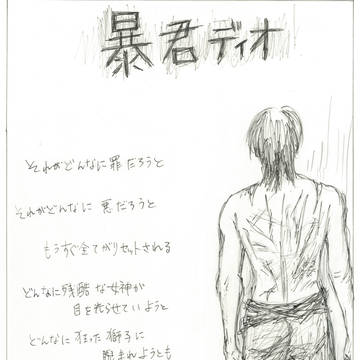 暴君ディオ
それがどんなに罪だろうと
それがどんなに悪だろうと
もうすぐ全てがリセットされる
どんなに残酷な女神が
目を光らせていようと
どんなに狂った獅子に
睨まれようとも